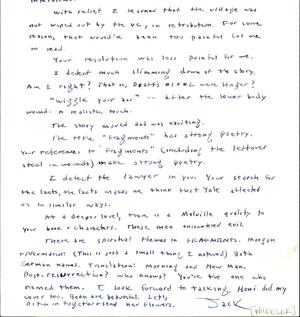 With relief I learned that the village was
not wiped out by the VC, in retribution. For some
reason, that would've been too painful for me
to read.
Your resolution was less painful for me.
I detect much slimming down of the story.
Am I right? That is, Drafts #1 & 2 were longer?
"Wiggle your ass" -- after the lower body
wound. A realistic touch.
The story moved and was exciting.
The title "Fragments" has strong poetry.
Your references to "fragments" (including the leftover
steel in wounds) make strong poetry.
I detect the lawyer in you. Your search for
the facts, the facts makes me think that Yale affected
us in similar ways.
At a deeper level, there is a Melville quality to
your book & characters. These men encountered evil.
There are spiritual themes in FRAGMENTS. Morgan
& Neumann! (This is just a small thing I noticed) Both
German names. Translation: Morning and New Man.
Post-resurrection? Who knows? You're the one who
named them. I look forward to talking. Nomi did my
cover too. Both are beautiful. Let's
pitch in together & send her flowers.
Jack
[WHEELER]